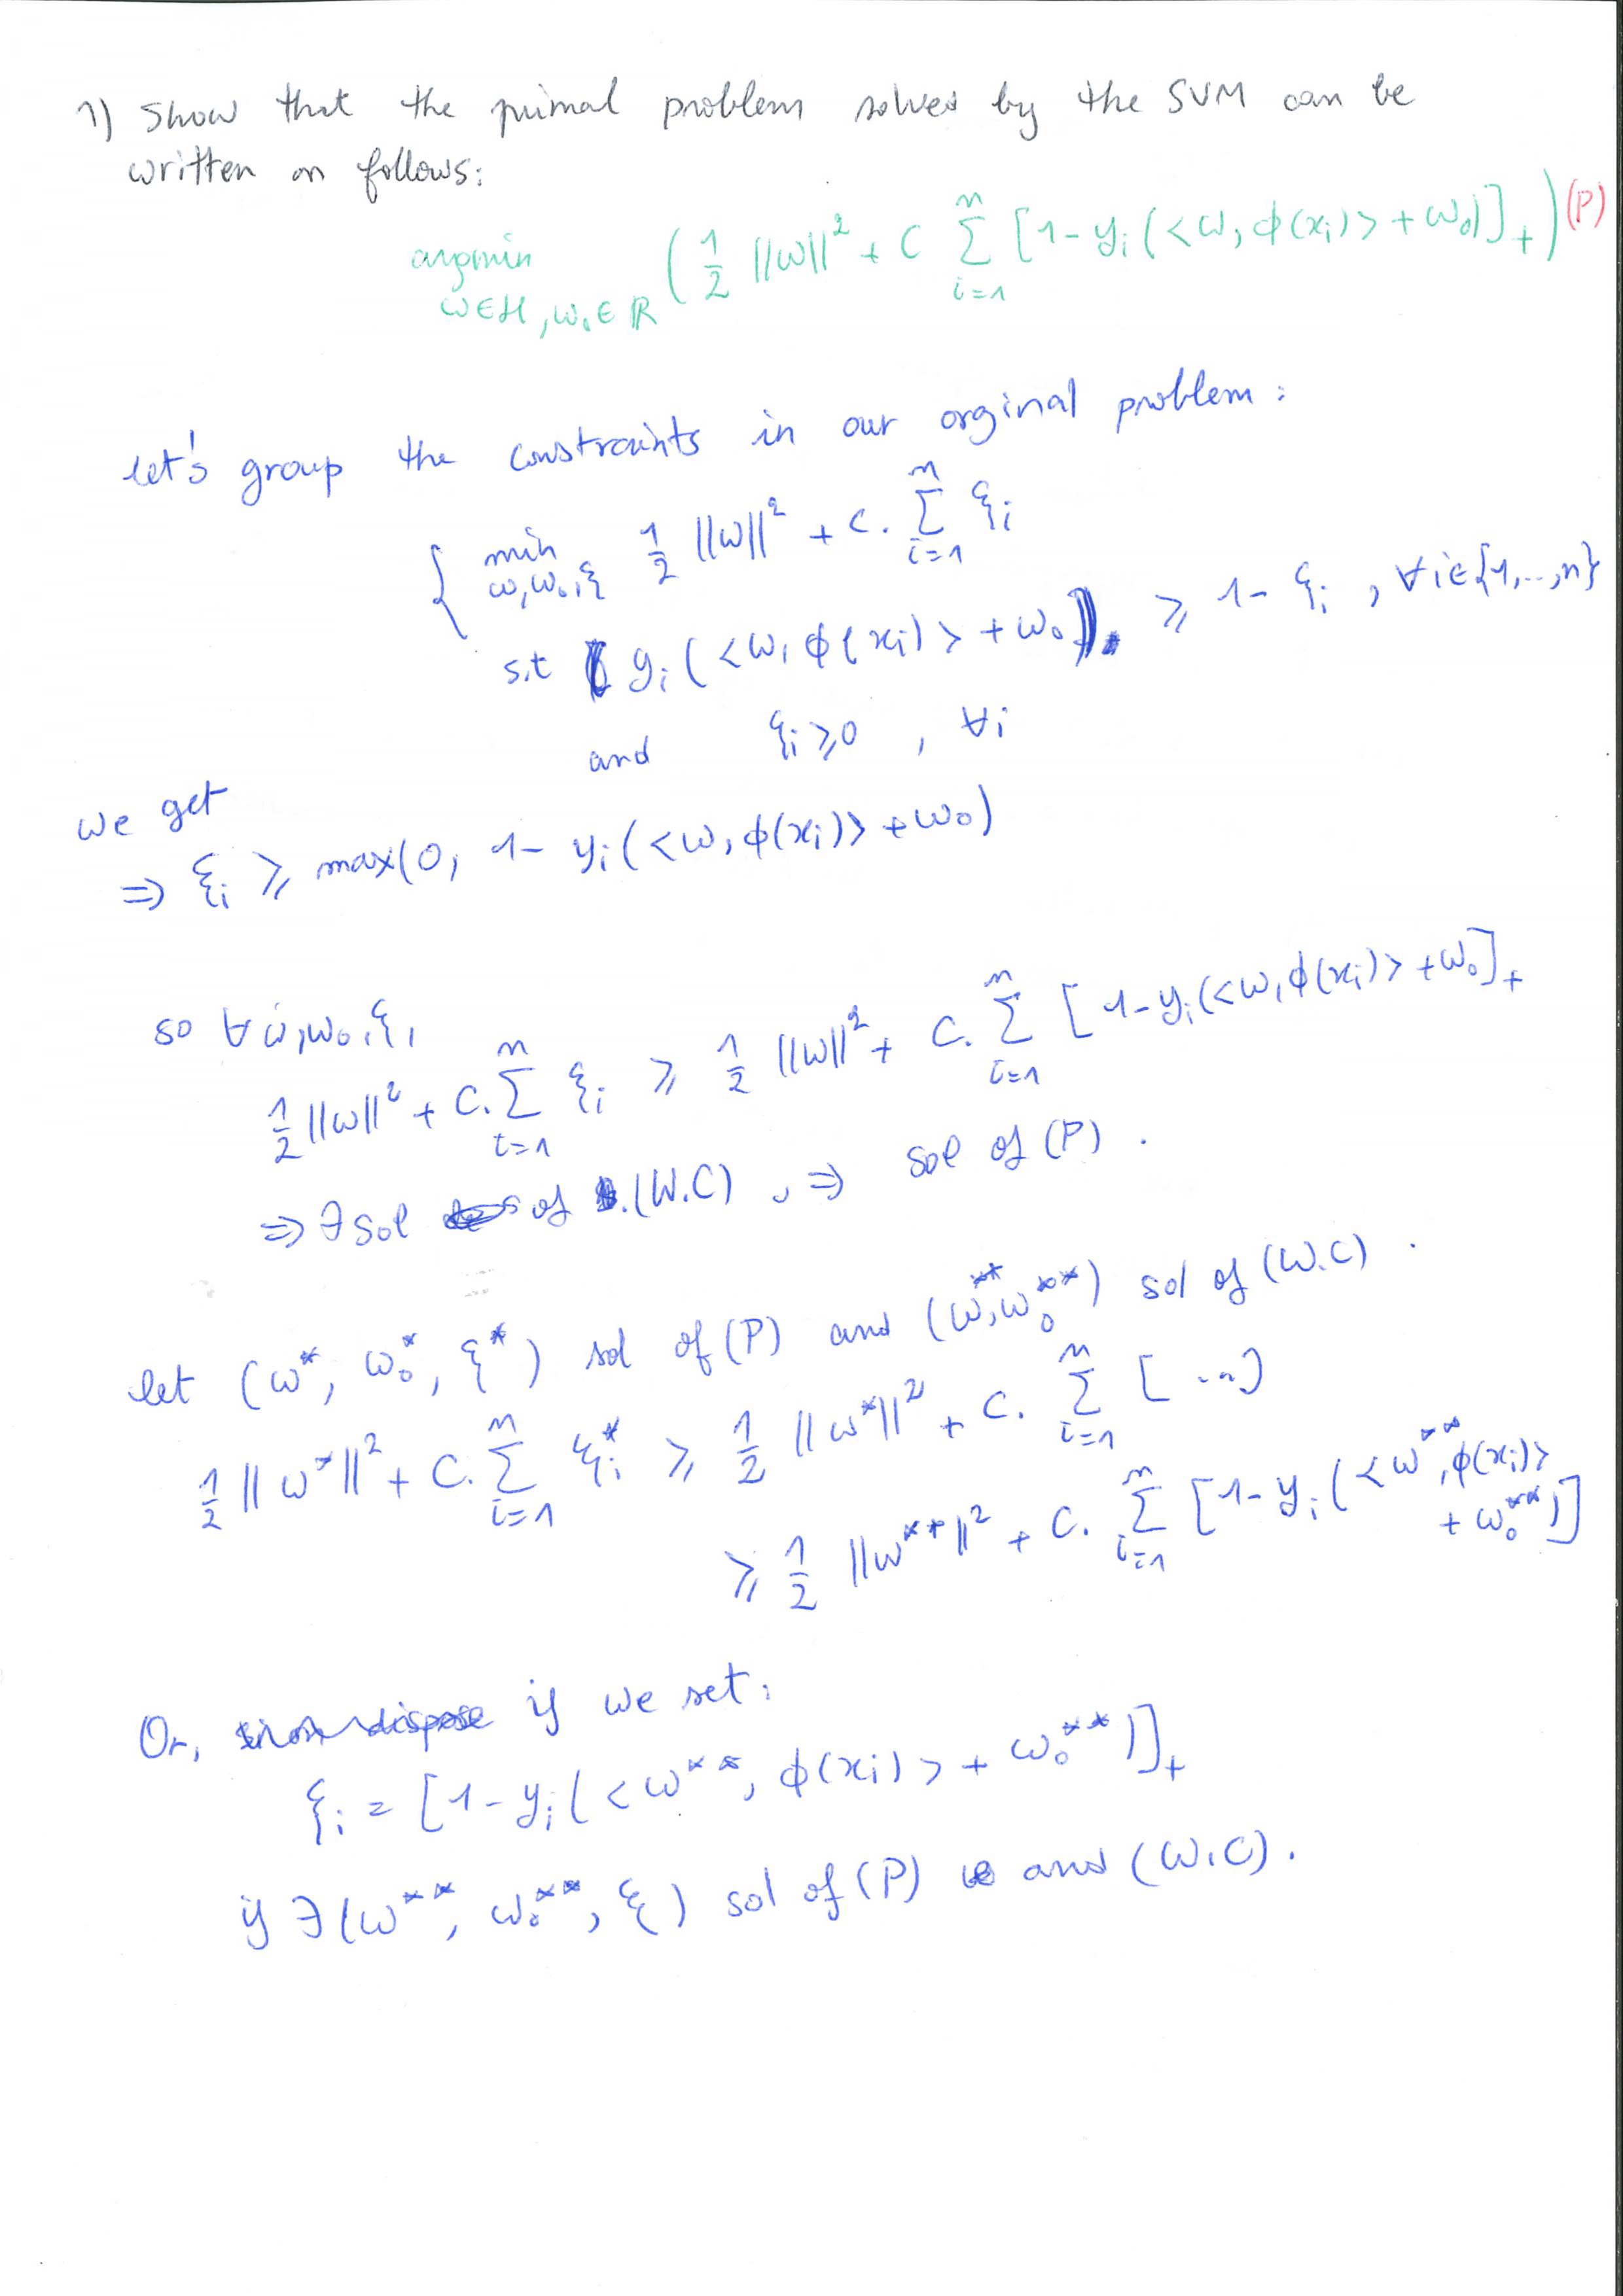 1) Show that the primal problem solved by the SVM can be
written as follows:
argmin_{w∈H, w₀∈ℝ} ( 1/2 ||w||² + C ∑_{i=1}^{n} [1 - y_i(<w, φ(x_i)> + w₀)]_+ ) (P)
let's group the constraints in our orginal problem:
{ min_{w,w₀,ξ} 1/2 ||w||² + C. ∑_{i=1}^{n} ξ_i
s.t y_i(<w, φ(x_i)> + w₀) ≥ 1 - ξ_i, ∀i∈{1,..,n}
and ξ_i ≥ 0, ∀i
we get
⇒ ξ_i ≥ max(0, 1 - y_i(<w, φ(x_i)> + w₀)
so ∀ w, w₀, ξ,
1/2 ||w||² + C. ∑_{i=1}^{n} ξ_i ≥ 1/2 ||w||² + C. ∑_{i=1}^{n} [1 - y_i(<w, φ(x_i)> + w₀]_+
⇒ ∃ sol of (W.C), ⇒ sol of (P).
let (w*, w₀*, ξ*) sol of (P) and (w**, w₀**) sol of (W.C).
1/2 ||w*||² + C. ∑_{i=1}^{n} ξ_i* ≥ 1/2 ||w*||² + C. ∑_{i=1}^{n} [...]
≥ 1/2 ||w**||² + C. ∑_{i=1}^{n} [1 - y_i(<w**, φ(x_i)> + w₀**)]
Or, if we set:
ξ_i = [1 - y_i(<w**, φ(x_i)> + w₀**)]_+
if ∃(w**, w₀**, ξ) sol of (P) and (W.C).